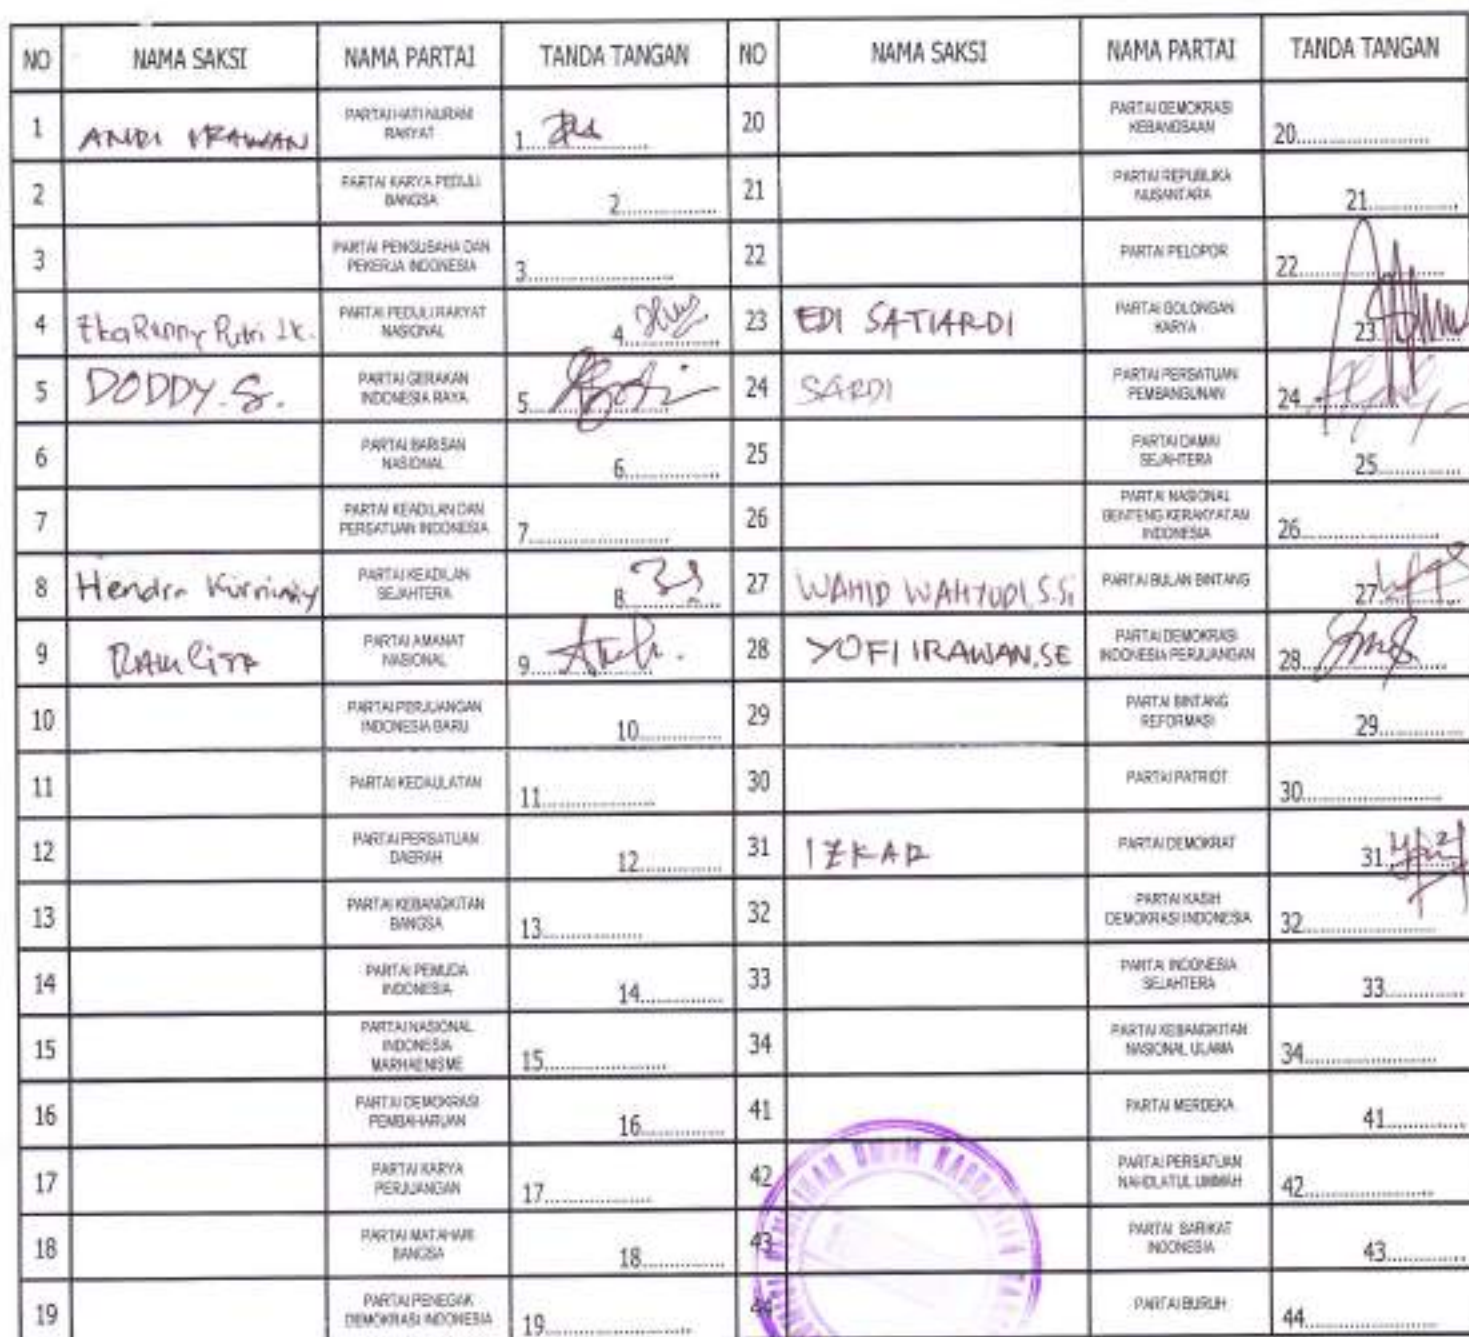 NO NAMA SAKSI NAMA PARTAI TANDA TANGAN NO NAMA SAKSI NAMA PARTAI TANDA TANGAN
1 ANDI IRAWAN PARTAI HATI NURANI RAKYAT 1 20 PARTAI DEMOKRASI KEBANGSAAN 20
2 PARTAI KARYA PEDULI BANGSA 2 21 PARTAI REPUBLIKA NUSANTARA 21
3 PARTAI PENGUSAHA DAN PEKERJA INDONESIA 3 22 PARTAI PELOPOR 22
4 Putri PARTAI PEDULI RAKYAT NASIONAL 4 23 EDI SATIARDI PARTAI GOLONGAN KARYA 23
5 DODDY.S. PARTAI GERAKAN INDONESIA RAYA 5 24 SARDI PARTAI PERSATUAN PEMBANGUNAN 24
6 PARTAI BARISAN NASIONAL 6 25 PARTAI DAMAI SEJAHTERA 25
7 PARTAI KEADILAN DAN PERSATUAN INDONESIA 7 26 PARTAI NASIONAL BENTENG KERAKYATAN INDONESIA 26
8 Hendra PARTAI KEADILAN SEJAHTERA 8 27 WAHID WAHYUDI, S.Si PARTAI BULAN BINTANG 27
9 PARTAI AMANAT NASIONAL 9 28 YOFI IRAWAN, SE PARTAI DEMOKRASI INDONESIA PERJUANGAN 28
10 PARTAI PERJUANGAN INDONESIA BARU 10 29 PARTAI BINTANG REFORMASI 29
11 PARTAI KEDAULATAN 11 30 PARTAI PATRIOT 30
12 PARTAI PERSATUAN DAERAH 12 31 IZKAR PARTAI DEMOKRAT 31
13 PARTAI KEBANGKITAN BANGSA 13 32 PARTAI KASIH DEMOKRASI INDONESIA 32
14 PARTAI PEMUDA INDONESIA 14 33 PARTAI INDONESIA SEJAHTERA 33
15 PARTAI NASIONAL INDONESIA MARHAENISME 15 34 PARTAI KEBANGKITAN NASIONAL ULAMA 34
16 PARTAI DEMOKRASI PEMBAHARUAN 16 41 PARTAI MERDEKA 41
17 PARTAI KARYA PERJUANGAN 17 42 PARTAI PERSATUAN NAHDLATUL UMMAH 42
18 PARTAI MATAHARI BANGSA 18 43 PARTAI SARIKAT INDONESIA 43
19 PARTAI PENEGAK DEMOKRASI INDONESIA 19 44 PARTAI BURUH 44